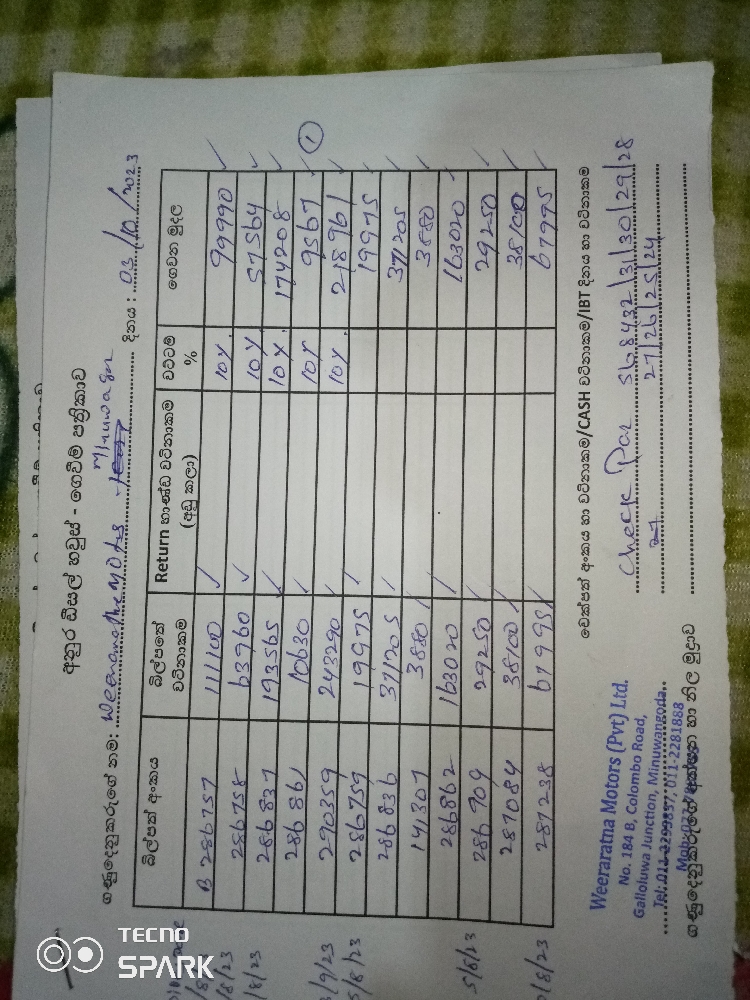 අනුර ඩීසල් හවුස් - ගෙවීම් පත්‍රිකාව
ගණුදෙනුකරුගේ නම: Weeraratne Motors දිනය : 03/10/2023
බිල්පත් අංකය බිල්පතේ වටිනාකම Return භාණ්ඩ වටිනාකම (අඩු කලා) වට්ටම % ගෙවන මුදල
B 286757 111100 ✓ 10% 99990 ✓
286758 63960 ✓ 10% 57564 ✓
286837 193565 ✓ 10% 174208 ✓
286861 10630 ✓ 10% 9567 ✓ 1
290359 243290 ✓ 10% 218961 ✓
286759 19975 ✓ 19975 ✓
286836 37205 ✓ 37205 ✓
141307 3880 ✓ 3880 ✓
286862 163020 ✓ 163020 ✓
286909 29250 ✓ 29250 ✓
287084 38100 ✓ 38100 ✓
287238 67995 ✓ 67995 ✓
චෙක්පත් අංකය හා වටිනාකම/CASH වටිනාකම/IBT දිනය හා වටිනාකම
Check Par 568432/31/30/29/28
27/26/25/24
Weeraratna Motors (Pvt) Ltd.
No. 184 B, Colombo Road,
Galloluwa Junction, Minuwangoda.
Tel: 011-2299857, 011-2281888
ගණුදෙනුකරුගේ අත්සන හා නිල මුද්‍රාව
/8/23
/8/23
/9/23
5/8/23
5/8/23
/8/23
TECNO
SPARK